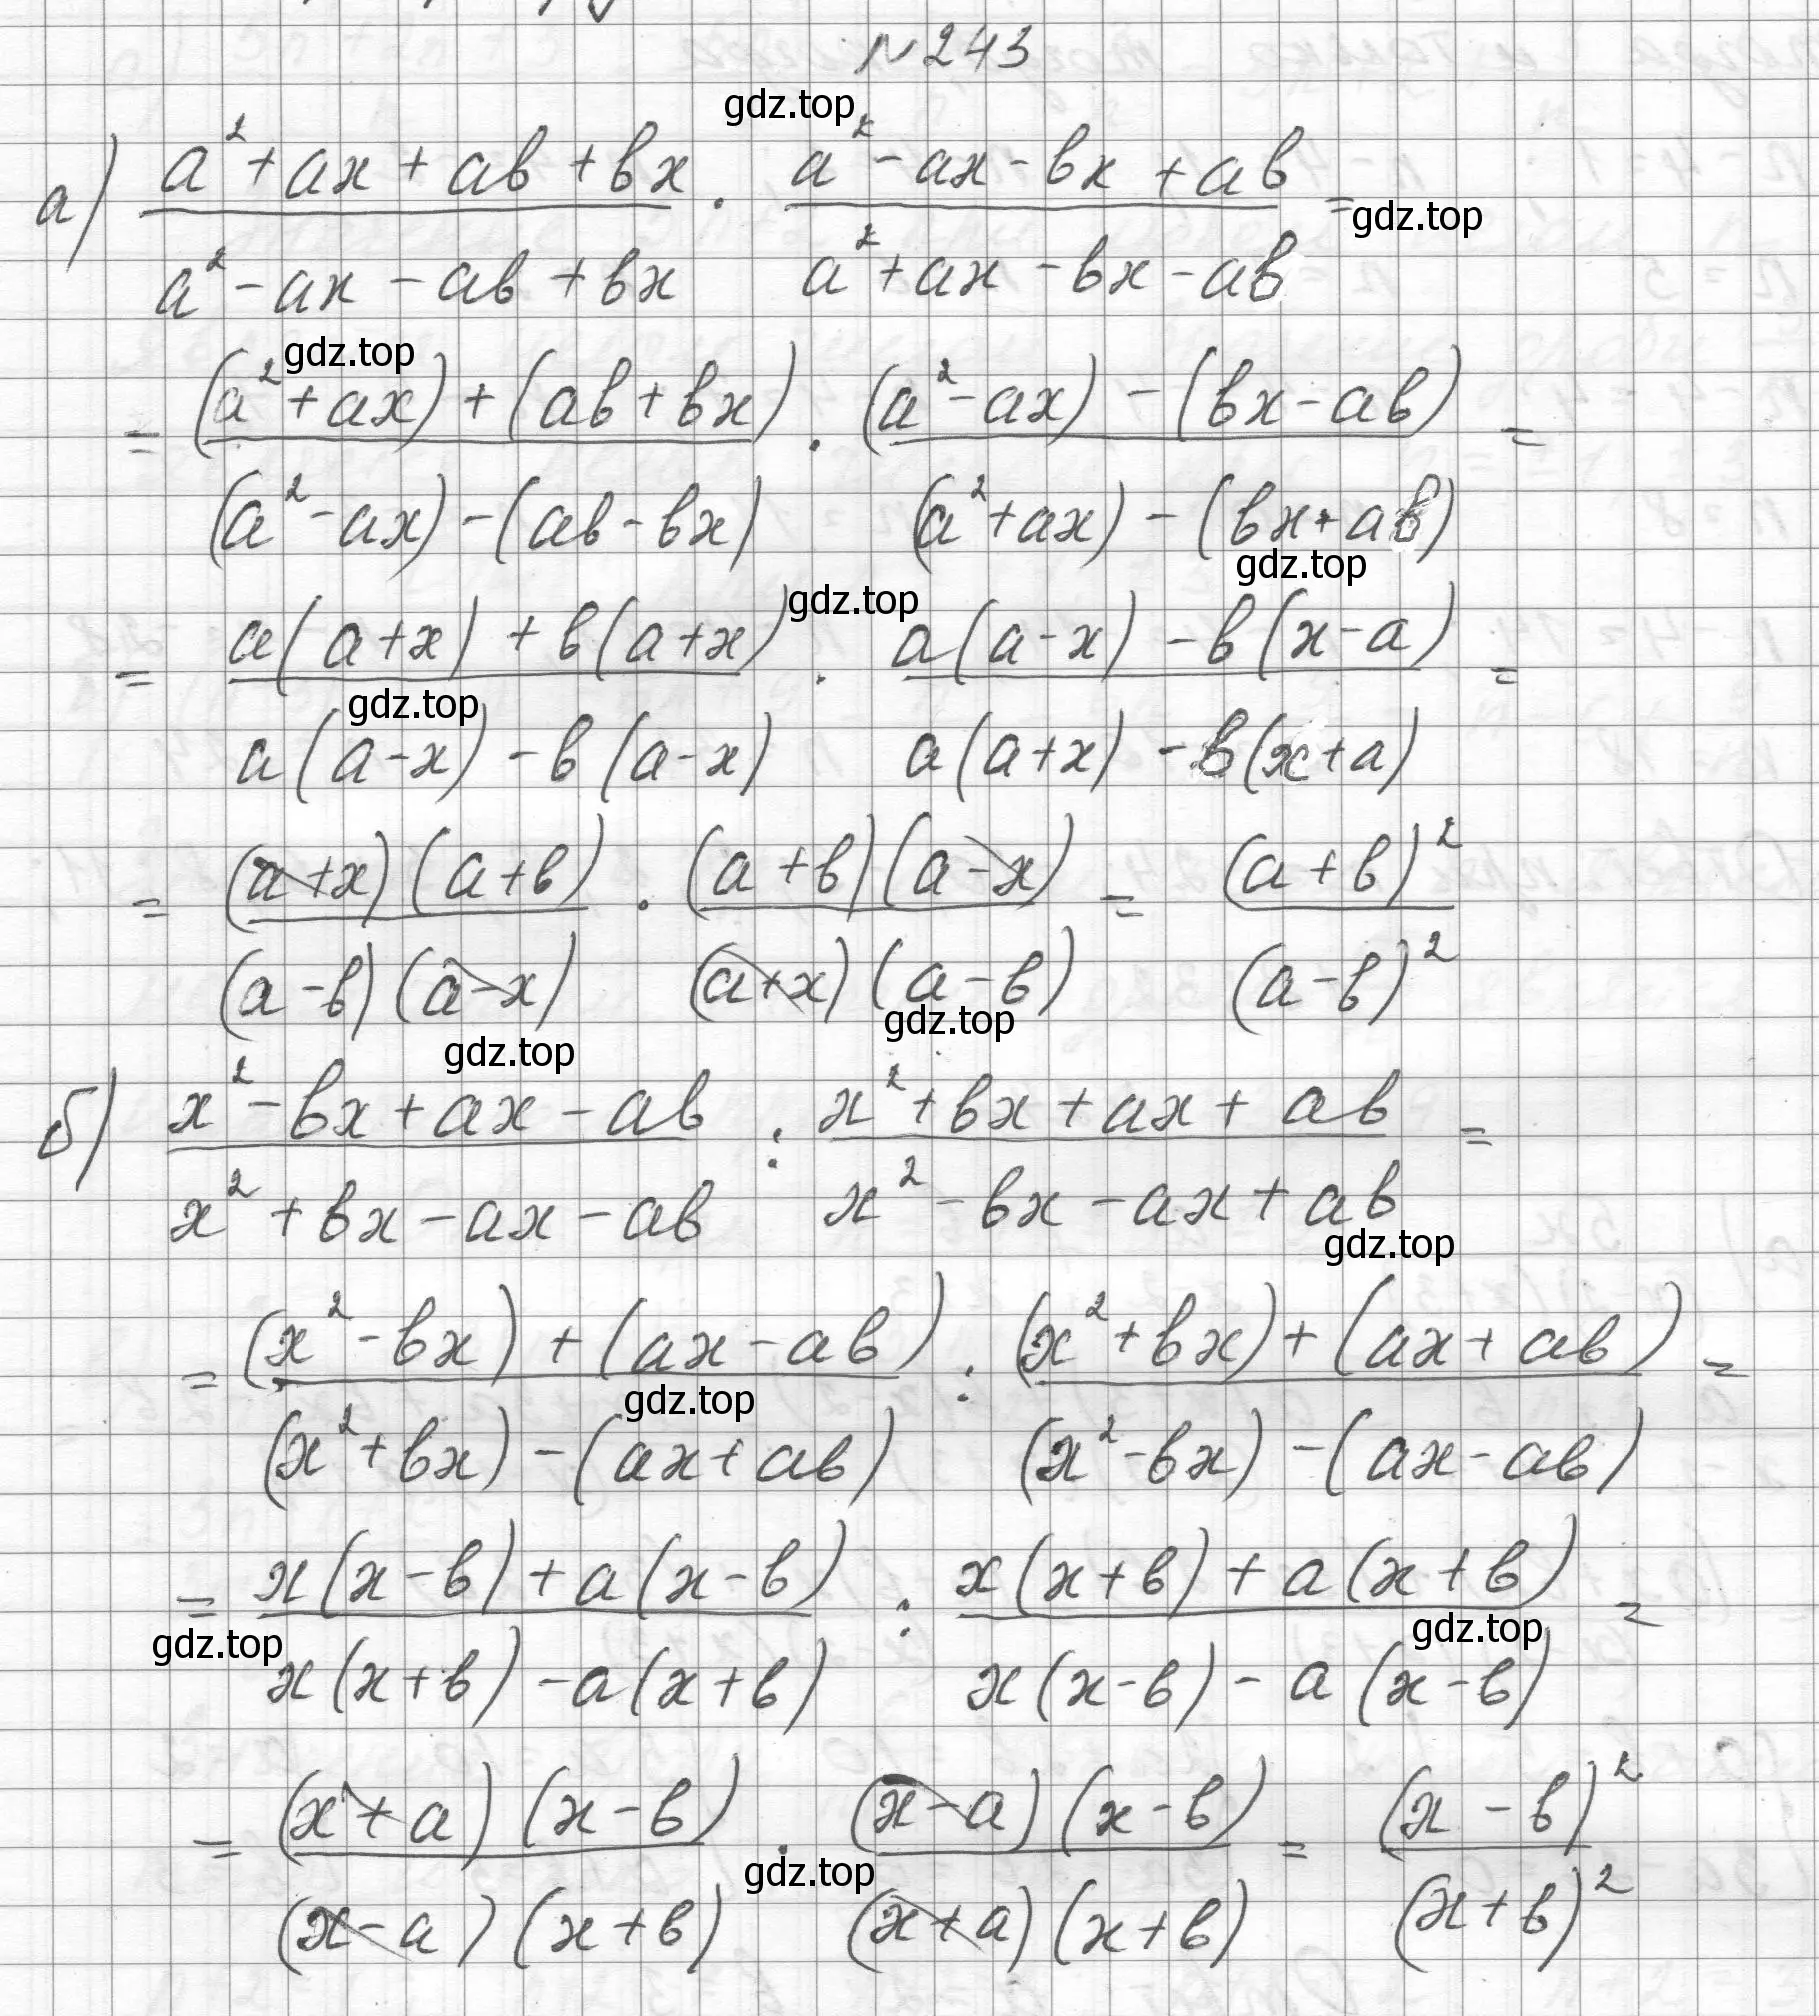 №243
gdz.top
а) (a² + ax + ab + bx)/(a² - ax - ab + bx) · (a² - ax - bx + ab)/(a² + ax - bx - ab) =
gdz.top
gdz.top
= ((a² + ax) + (ab + bx))/((a² - ax) - (ab - bx)) · ((a² - ax) - (bx - ab))/((a² + ax) - (bx + ab)) =
gdz.top
gdz.top
= (a(a + x) + b(a + x))/(a(a - x) - b(a - x)) · (a(a - x) - b(x - a))/(a(a + x) - b(x + a))
=
gdz.top
= ((a + x)(a + b))/((a - b)(a - x)) · ((a + b)(a - x))/((a + x)(a - b)) = (a + b)²/(a - b)²
gdz.top
gdz.top
б) (x² - bx + ax - ab)/(x² + bx - ax - ab) : (x² + bx + ax + ab)/(x² - bx - ax + ab) =
gdz.top
= ((x² - bx) + (ax - ab))/((x² + bx) - (ax + ab)) : ((x² + bx) + (ax + ab))/((x² - bx) - (ax - ab)) =
gdz.top
= (x(x - b) + a(x - b))/(x(x + b) - a(x + b)) : (x(x + b) + a(x + b))/(x(x - b) - a(x - b)) =
gdz.top
gdz.top
= ((x + a)(x - b))/((x - a)(x + b)) · ((x - a)(x - b))/((x + a)(x + b)) = (x - b)²/(x + b)²
gdz.top